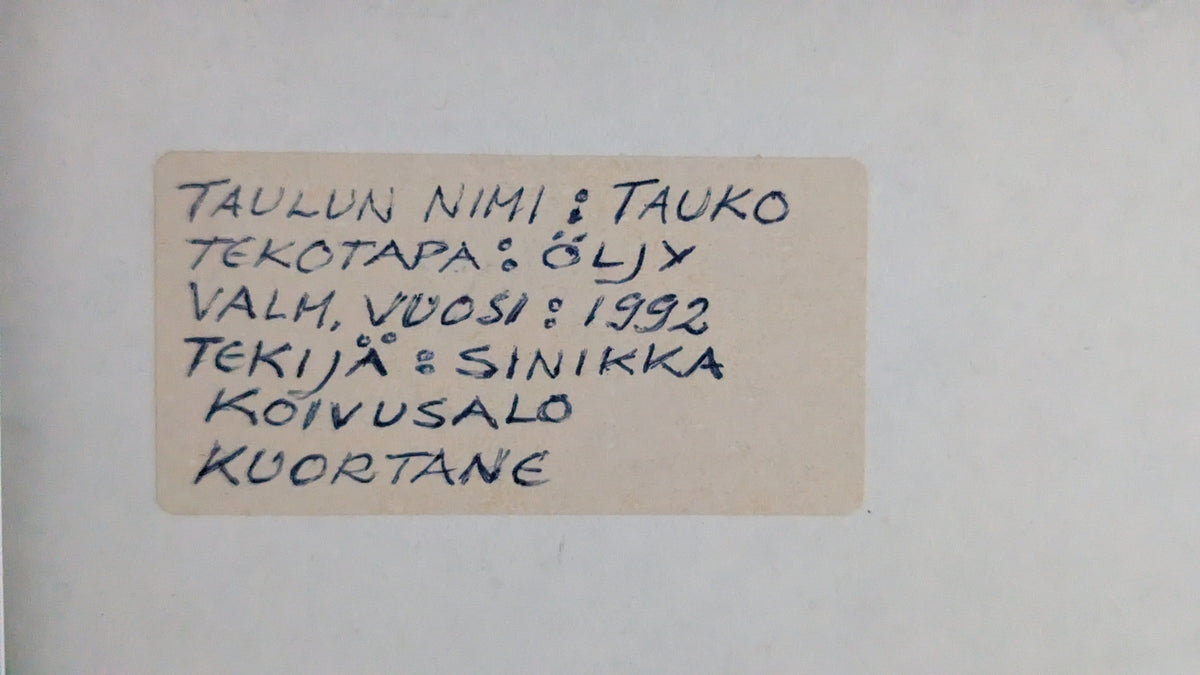 TAULUN NIMI : TAUKO
TEKOTAPA : ÖLJY
VALM. VUOSI : 1992
TEKIJÄ : SINIKKA
KOIVUSALO
KUORTANE